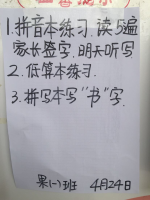 1.拼音本练习.读5遍
家长签字.明天听写
2.低算本练习.
3.拼写本写“书”字.
果(一)班 4月24日